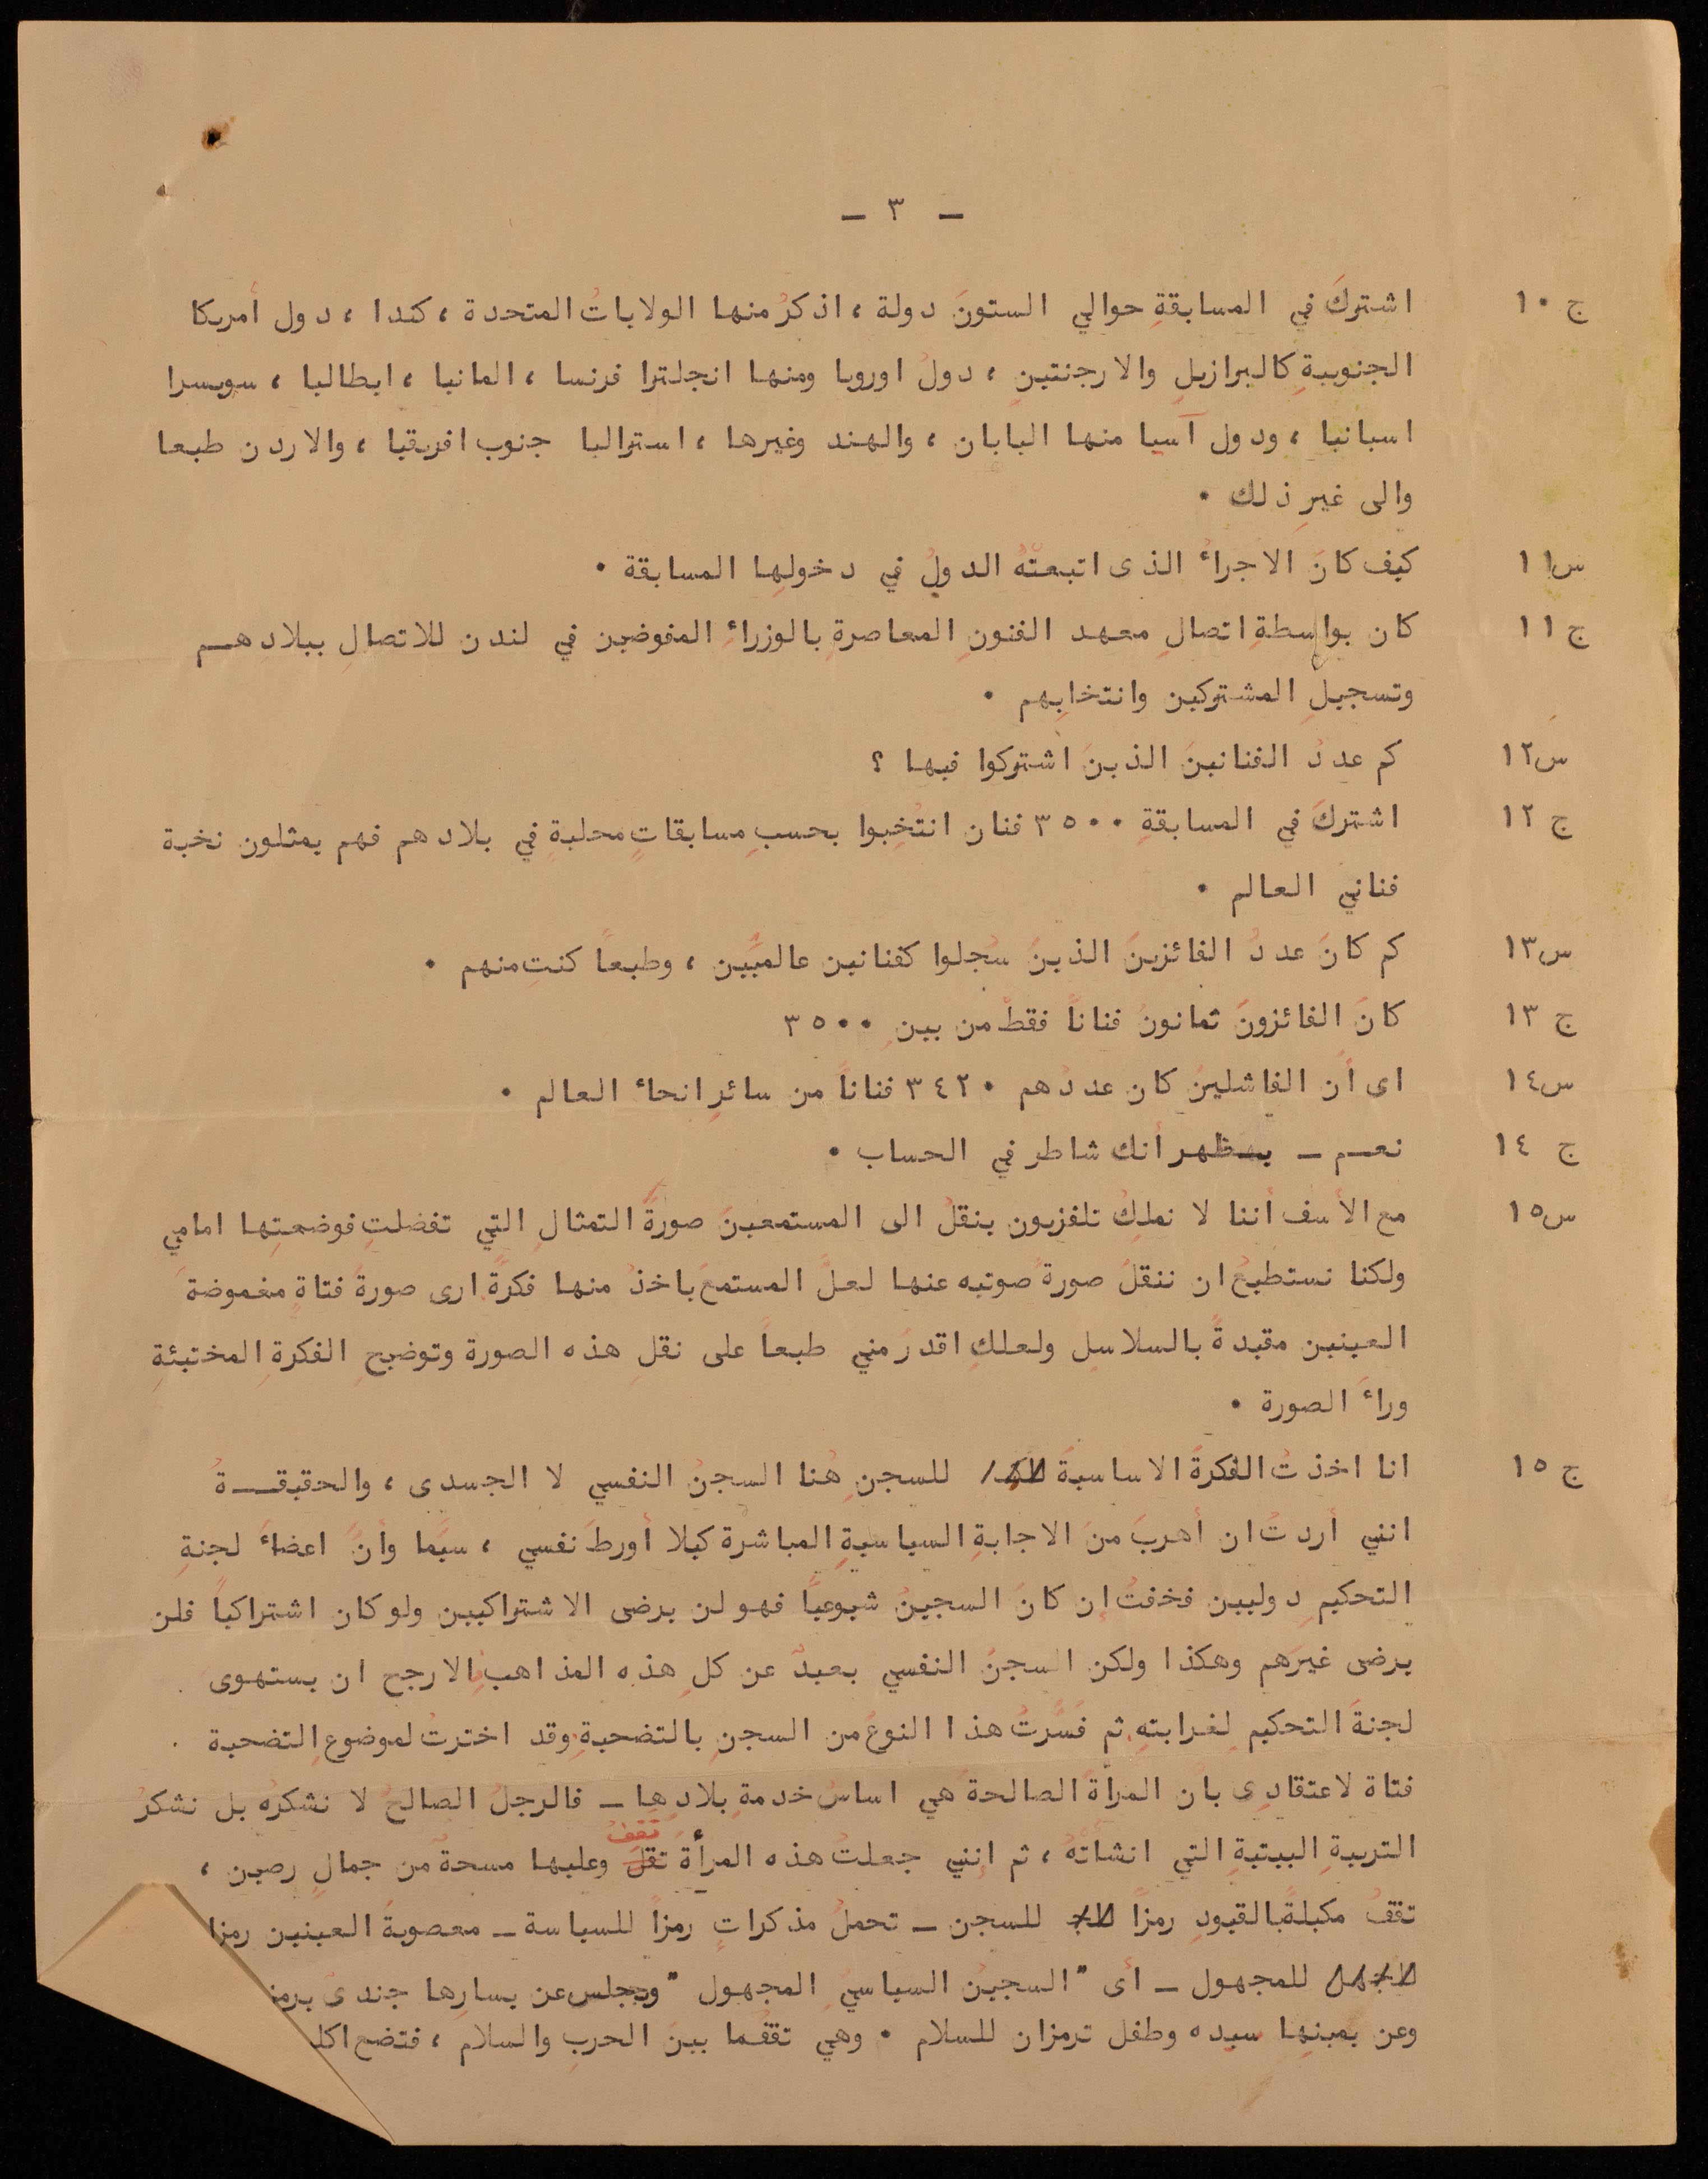 – ٣ –
ج ١٠ اشتركَ في المسابقةِ حوالي الستونَ دولة ، اذكرُ منها الولاياتُ المتحدة ، كندا ، دول أمريكا
الجنوبيةِ كالبرازيلِ والارجنتينِ ، دولُ اوروبا ومنها انجلترا فرنسا ، المانيا ، ايطاليا ، سويسرا
اسبانيا ، ودول آسيا منها اليابان ، والهند وغيرها ، استراليا جنوب افريقيا ، والاردن طبعا
والى غيرِ ذلك .
س١١ كيف كانَ الاجراءُ الذى اتبعتْهُ الدولُ في دخولِها المسابقة .
ج ١١ كان بواسطةِ اتصالِ معهد الفنونِ المعاصرةِ بالوزراءِ المفوضين في لندن للاتصالِ ببلادهـم
وتسجيلِ المشتركين وانتخابِهم .
س١٢ كم عددُ الفنانينَ الذينَ اشتركوا فيها ؟
ج ١٢ اشتركَ في المسابقةِ ٣٥٠٠ فنان انتُخِبوا بحسبِ مسابقاتٍ محليةٍ في بلادهم فهم يمثلون نخبة
فناني العالم .
س١٣ كم كانَ عددُ الفائزينَ الذينَ سُجلوا كفنانين عالميّين ، وطبعاً كنتِ منهم .
ج ١٣ كانَ الفائزونَ ثمانونَ فناناً فقطْ من بينِ ٣٥٠٠
س١٤ اى أن الفاشلينَ كان عددُهم ٣٤٢٠ فناناً من سائرِ انحاء العالم .
ج ١٤ نعـم – يظهر أنك شاطر في الحساب .
س١٥ مع الأسف أننا لا نملكُ تلفزيون ينقلُ الى المستمعينَ صورةَ التمثالِ التي تفضلتِ فوضعتِها امامي
ولكنا نستطيعُ ان ننقلَ صورةً صوتيه عنها لعلَّ المستمعَ ياخذُ منها فكرةً ارى صورةَ فتاةٍ مغموضةَ
العينين مقيدةً بالسلاسلِ ولعلكِ اقدرَ مني طبعاً على نقلِ هذه الصورة وتوضيحِ الفكرةِ المختبئةِ
وراءَ الصورة .
ج ١٥ انا اخذتُ الفكرةَ الاساسيةَ للسجنِ هُنا السجنُ النفسي لا الجسدى ، والحقيقــةُ
انني أردتُ ان أهربَ منَ الاجابةِ السياسيةِ المباشرة كيلا أورطَ نفسي ، سيّما وأنَّ اعضاءَ لجنةِ
التحكيمِ دوليين فخفتُ إن كانَ السجينُ شيوعياً فهو لن يرضى الاشتراكيين ولو كان اشتراكياً فلن
يرضى غيرَهم وهكذا ولكن السجنَ النفسي بعيدٌ عن كلِ هذه المذاهبِ الارجح ان يستهوى
لجنةَ التحكيمِ لغرابتهِ ثم فسّرتُ هذا النوعَ من السجنِ بالتضحيةِ وقد اخترتُ لموضوع التضحية
فتاة لاعتقادِى بأن المرأةَ الصالحةَ هي اساسُ خدمةِ بلادِها – فالرجلُ الصالحُ لا نشكرُه بل نشكرُ
التربيةِ البيتيةِ التي انشاتْهُ ، ثم إنني جعلتُ هذه المرأةَ تقفُ وعليها مسحةٌ من جمالٍ رصين ،
تقفُ مكبلةً بالقيودِ رمزاً للسجن – تحملُ مذكراتٍ رمزاً للسياسة – معصوبةُ العينين رمزا
للمجهول – أى " السجينُ السياسيُ المجهول " ويجلس عن يسارِها جندىٌ يرمز
وعن يمينِها سيده وطفل ترمزان للسلام . وهي تقفُما بينَ الحربِ والسلام ، فتضع اكل